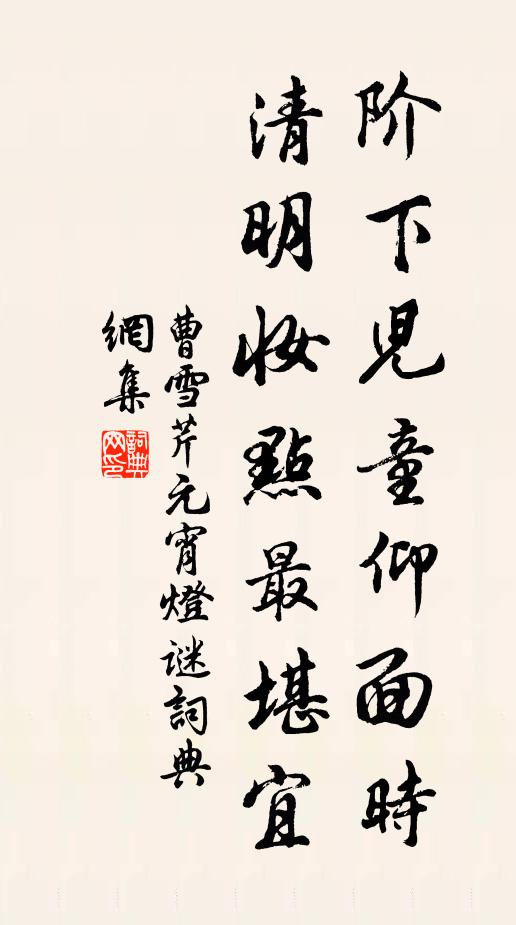 阶下児童仰面時
清明妆點最堪宜
曹雪芹元宵燈谜詞典
網集
詞典網印